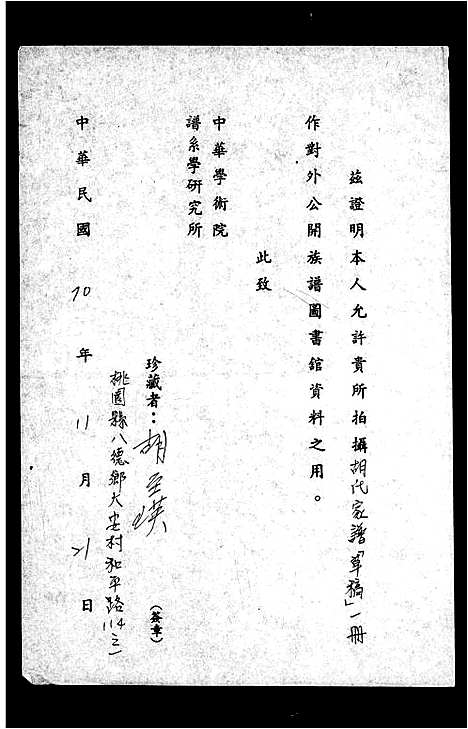 茲證明本人允許貴所拍攝胡氏家譜「草稿」一冊
作對外公開族譜圖書館資料之用。
此致
中華學術院
譜系學研究所
珍藏者：胡玉瑛（簽章）
桃園縣八德鄉大安村和平路114之1
中華民國70年11月21日